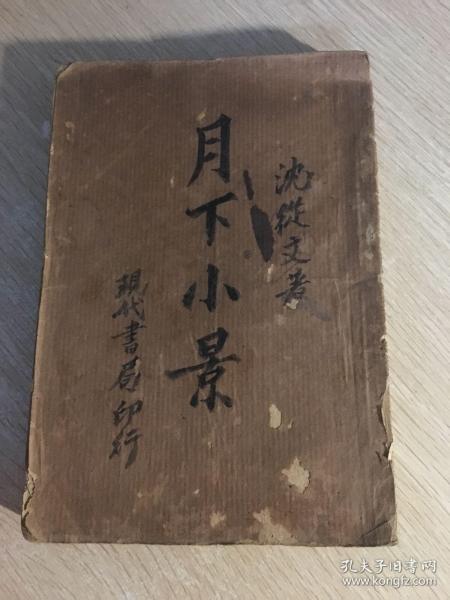 沈從文著
月下小景
現代書局印行
孔夫子旧书网
www.kongfz.com